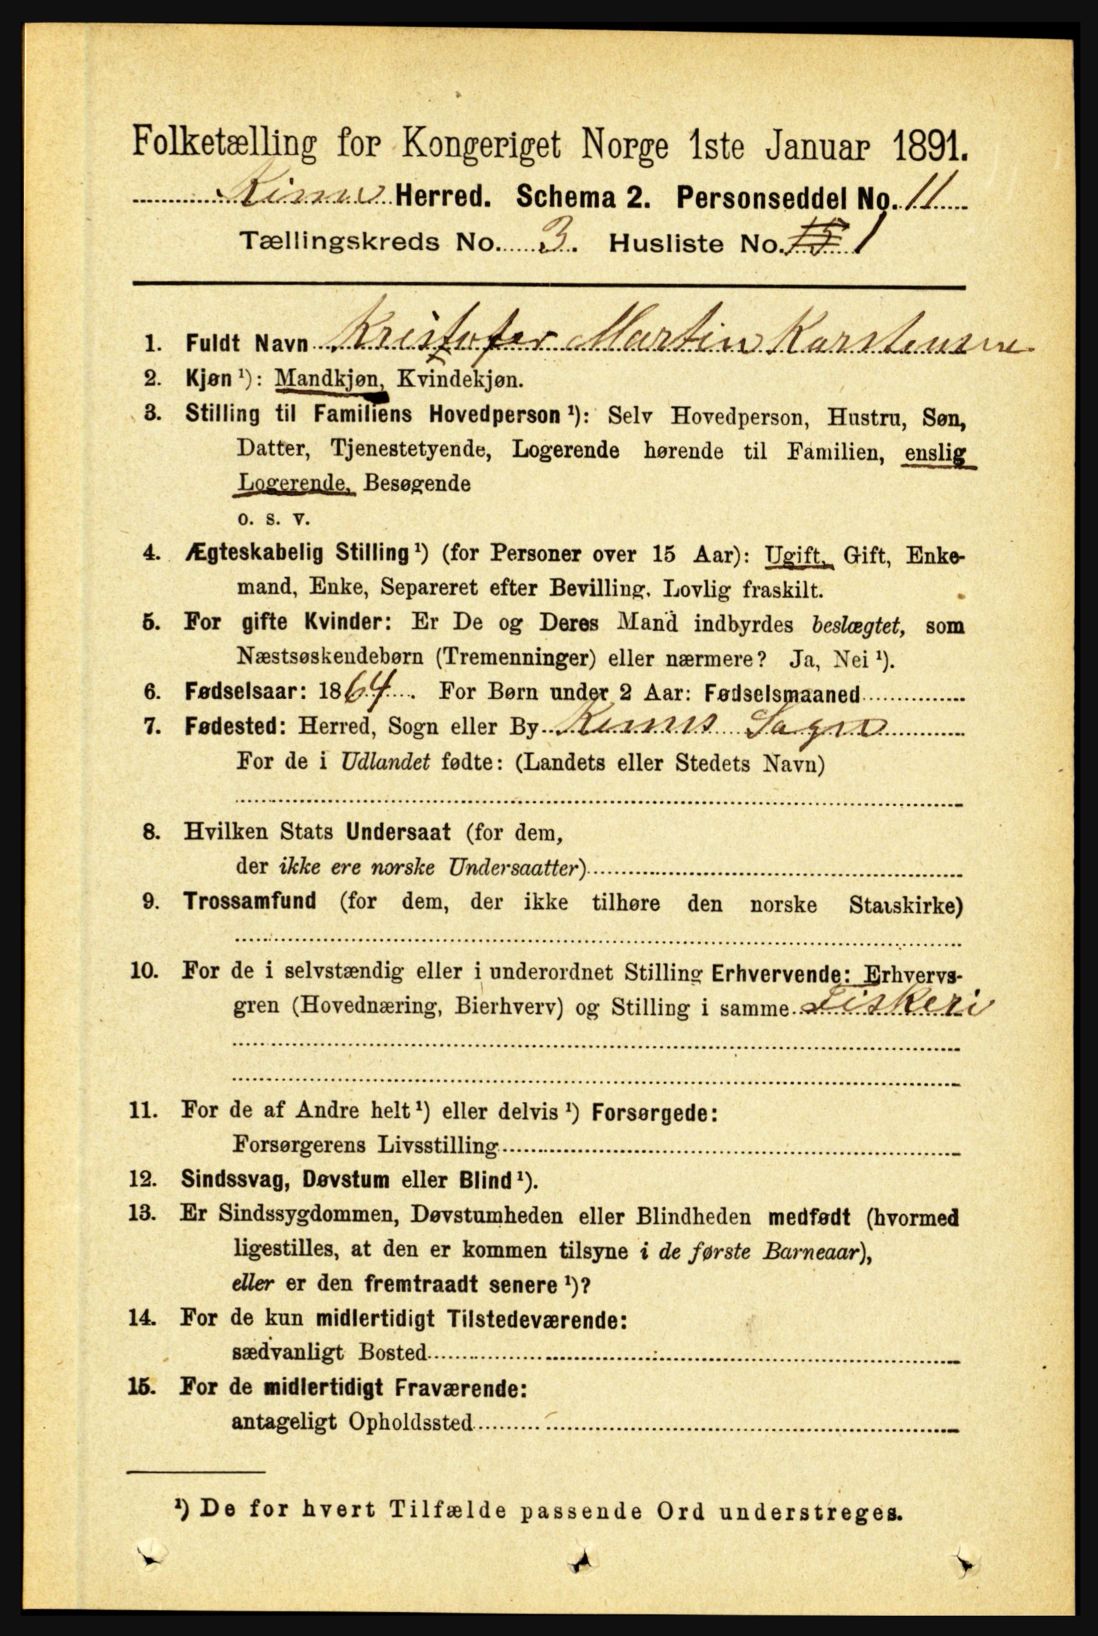 Folketælling for Kongeriget Norge 1ste Januar 1891.
Kinn Herred. Schema 2. Personseddel No. 11
Tællingskreds No. 3. Husliste No. 15 1
1. Fuldt Navn Kristofer Martin Karstensen
2. Kjøn ¹): Mandkjøn, Kvindekjøn.
3. Stilling til Familiens Hovedperson ¹): Selv Hovedperson, Hustru, Søn,
Datter, Tjenestetyende, Logerende hørende til Familien, enslig
Logerende, Besøgende
o. s. v.
4. Ægteskabelig Stilling ¹) (for Personer over 15 Aar): Ugift, Gift, Enke-
mand, Enke, Separeret efter Bevilling. Lovlig fraskilt.
5. For gifte Kvinder: Er De og Deres Mand indbyrdes beslægtet, som
Næstsøskendebørn (Tremenninger) eller nærmere? Ja, Nei ¹).
6. Fødselsaar: 1864. For Børn under 2 Aar: Fødselsmaaned
7. Fødested: Herred, Sogn eller By Kinns Sogn
For de i Udlandet fødte: (Landets eller Stedets Navn)
8. Hvilken Stats Undersaat (for dem,
der ikke ere norske Undersaatter)
9. Trossamfund (for dem, der ikke tilhøre den norske Statskirke)
10. For de i selvstændig eller i underordnet Stilling Erhvervende: Erhvervs-
gren (Hovednæring, Bierhverv) og Stilling i samme Fiskeri
11. For de af Andre helt ¹) eller delvis ¹) Forsørgede:
Forsørgerens Livsstilling
12. Sindssvag, Døvstum eller Blind ¹).
13. Er Sindssygdommen, Døvstumheden eller Blindheden medfødt (hvormed
ligestilles, at den er kommen tilsyne i de første Barneaar),
eller er den fremtraadt senere ¹)?
14. For de kun midlertidigt Tilstedeværende:
sædvanligt Bosted
15. For de midlertidigt Fraværende:
antageligt Opholdssted
¹) De for hvert Tilfælde passende Ord understreges.